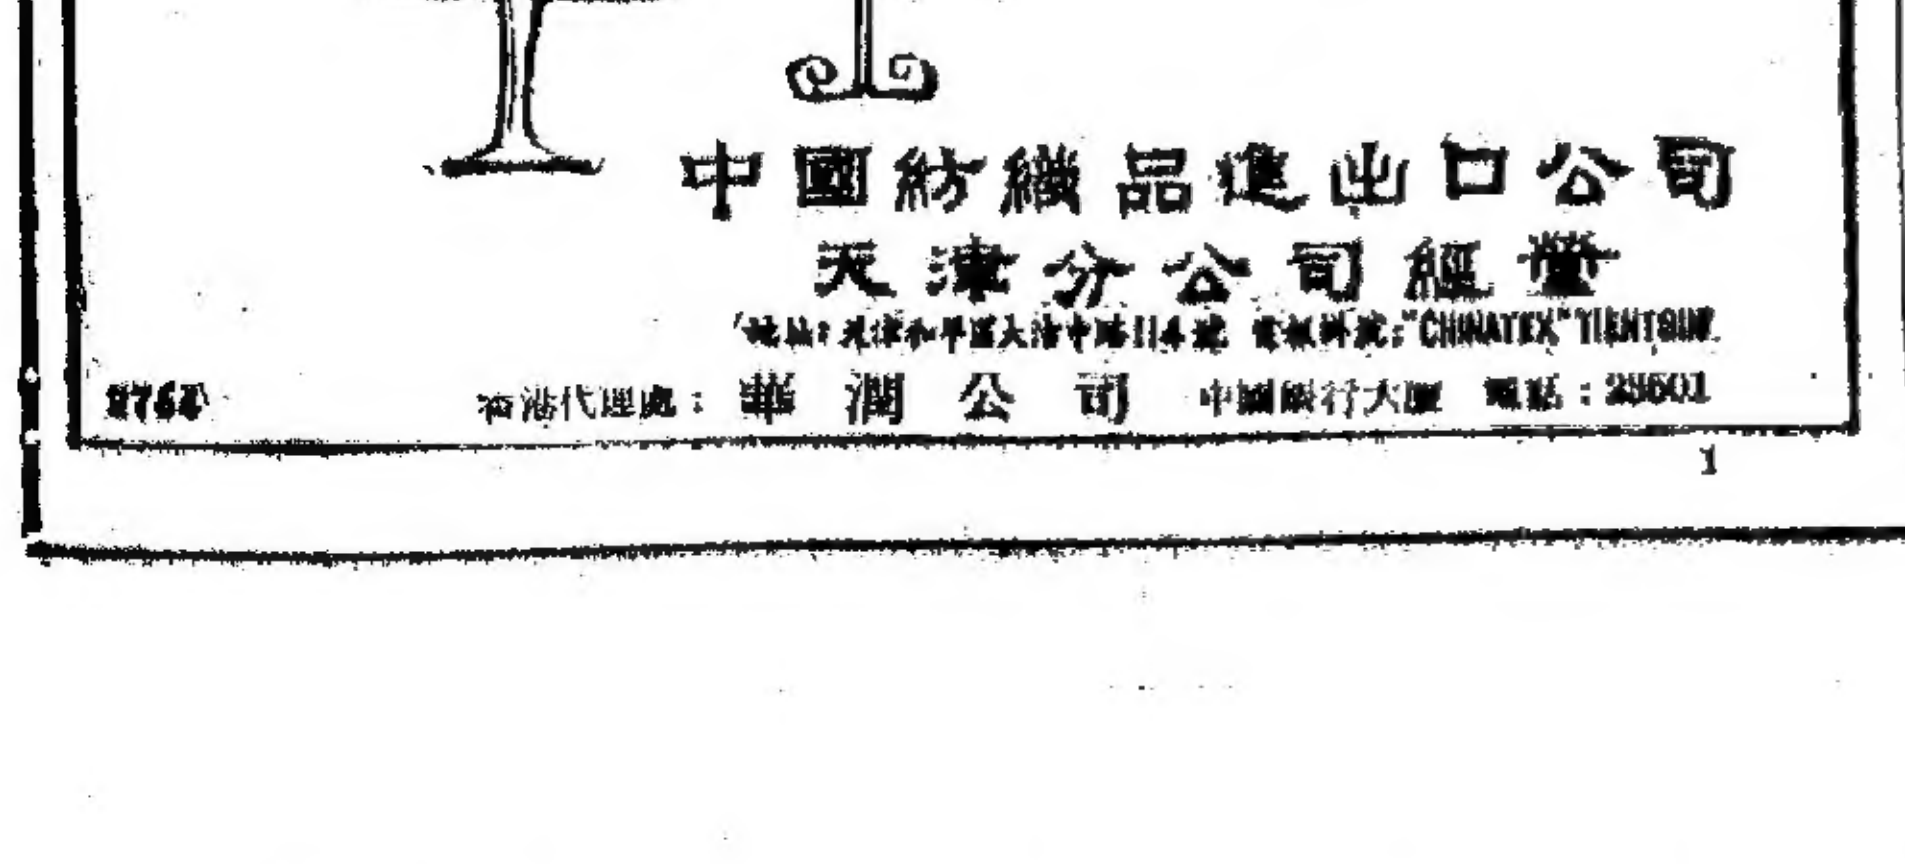 中國紡織品進出口公司
天津分公司經營
地址:天津和平區大沽中路 電報掛號:"CHINATEX" TIENTSIN.
香港代理處:華潤公司 中國銀行大廈 電話:
1